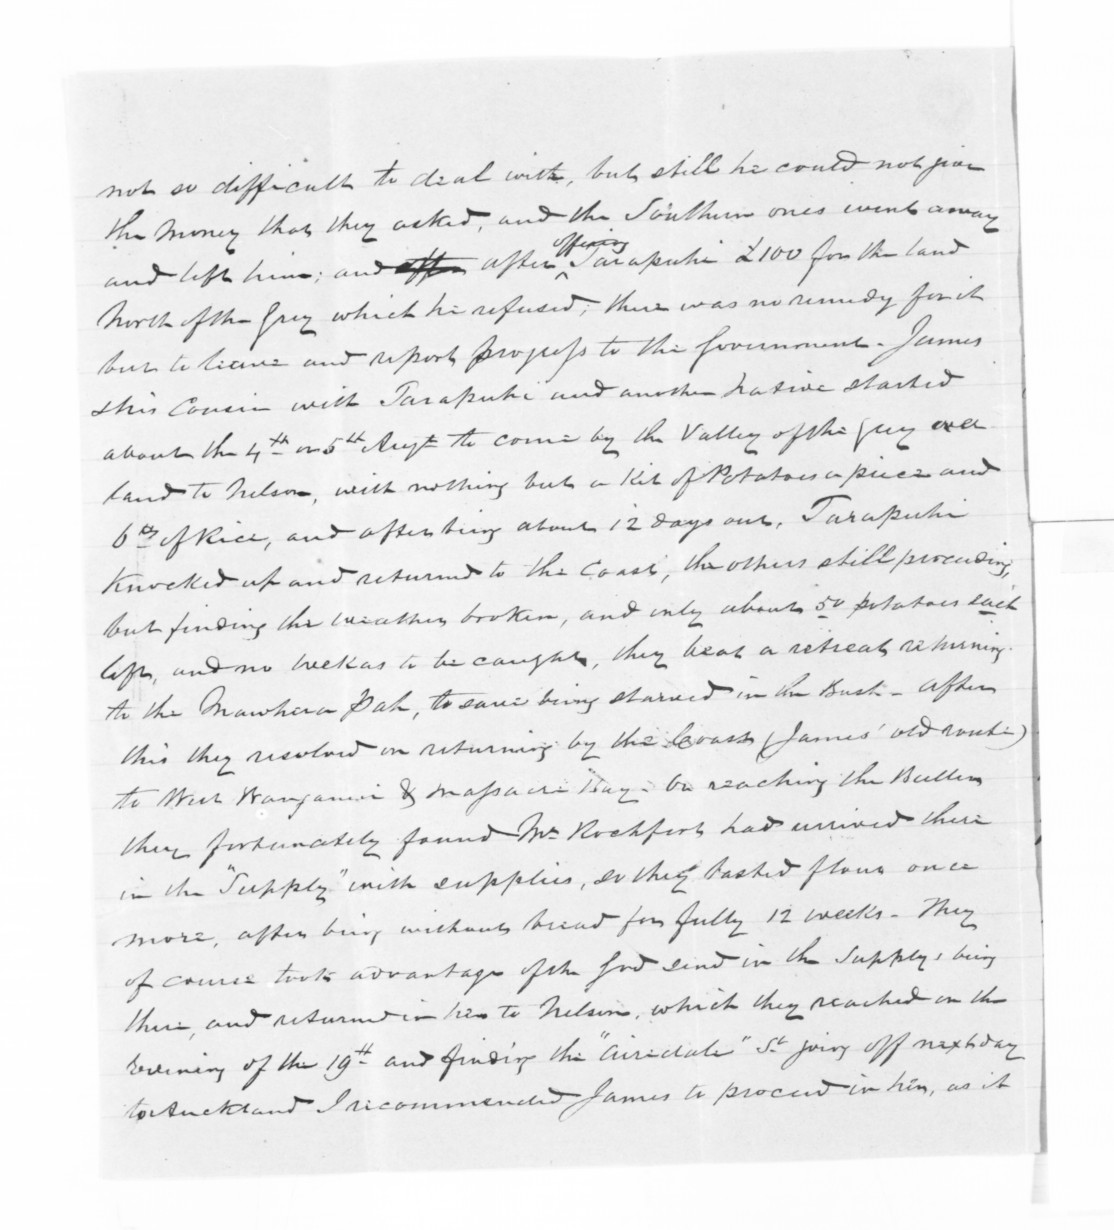 not so difficult to deal with, but still he could not give
the Money that they asked, and the Southern ones went away
and left him; and after offering Tarapuhi £100 for the land
North of the Grey which he refused, there was no remedy for it
but to leave and report progress to the Government - James
& his Cousin with Tarapuhi and another Native started
about the 4th or 5th Augt to come by the Valley of the Grey over
land to Nelson, with nothing but a Kit of Potatoes a piece and
6 lbs of Rice, and after being about 12 days out, Tarapuhi
Knocked up and returned to the Coast, the others still proceeding,
but finding the weather broken, and only about 50 potatoes each
left, and no wekas to be caught, they beat a retreat returning
to the Mawhera Pah, to save being starved in the Bush - After
this they resolved on returning by the Coast (James' old route)
to West Wanganui & Massacre Bay - On reaching the Buller
they fortunately found Mr Rochfort had arrived there
in the "Supply" with supplies, so they tasted flour once
more, after being without bread for fully 12 weeks - They
of course took advantage of the God send in the Supply's being
there, and returned in her to Nelson, which they reached on the
evening of the 19th and finding the "Airedale" St going off next day
to Auckland I recommended James to proceed in her, as it